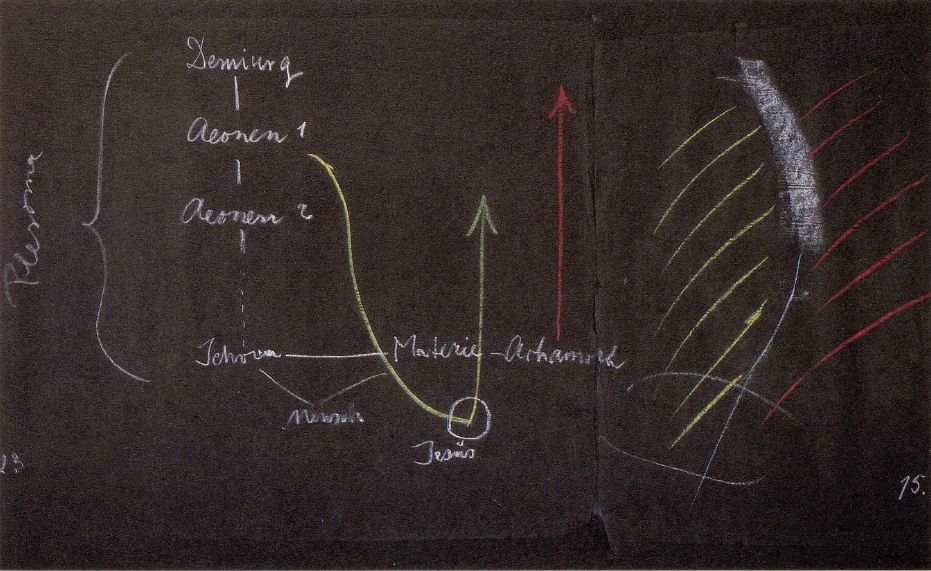 Demiurg
Aeonen 1
Pleroma
Aeonen 2
Jehova Materie - Achamoth
Mensch
Jesus
23
15.